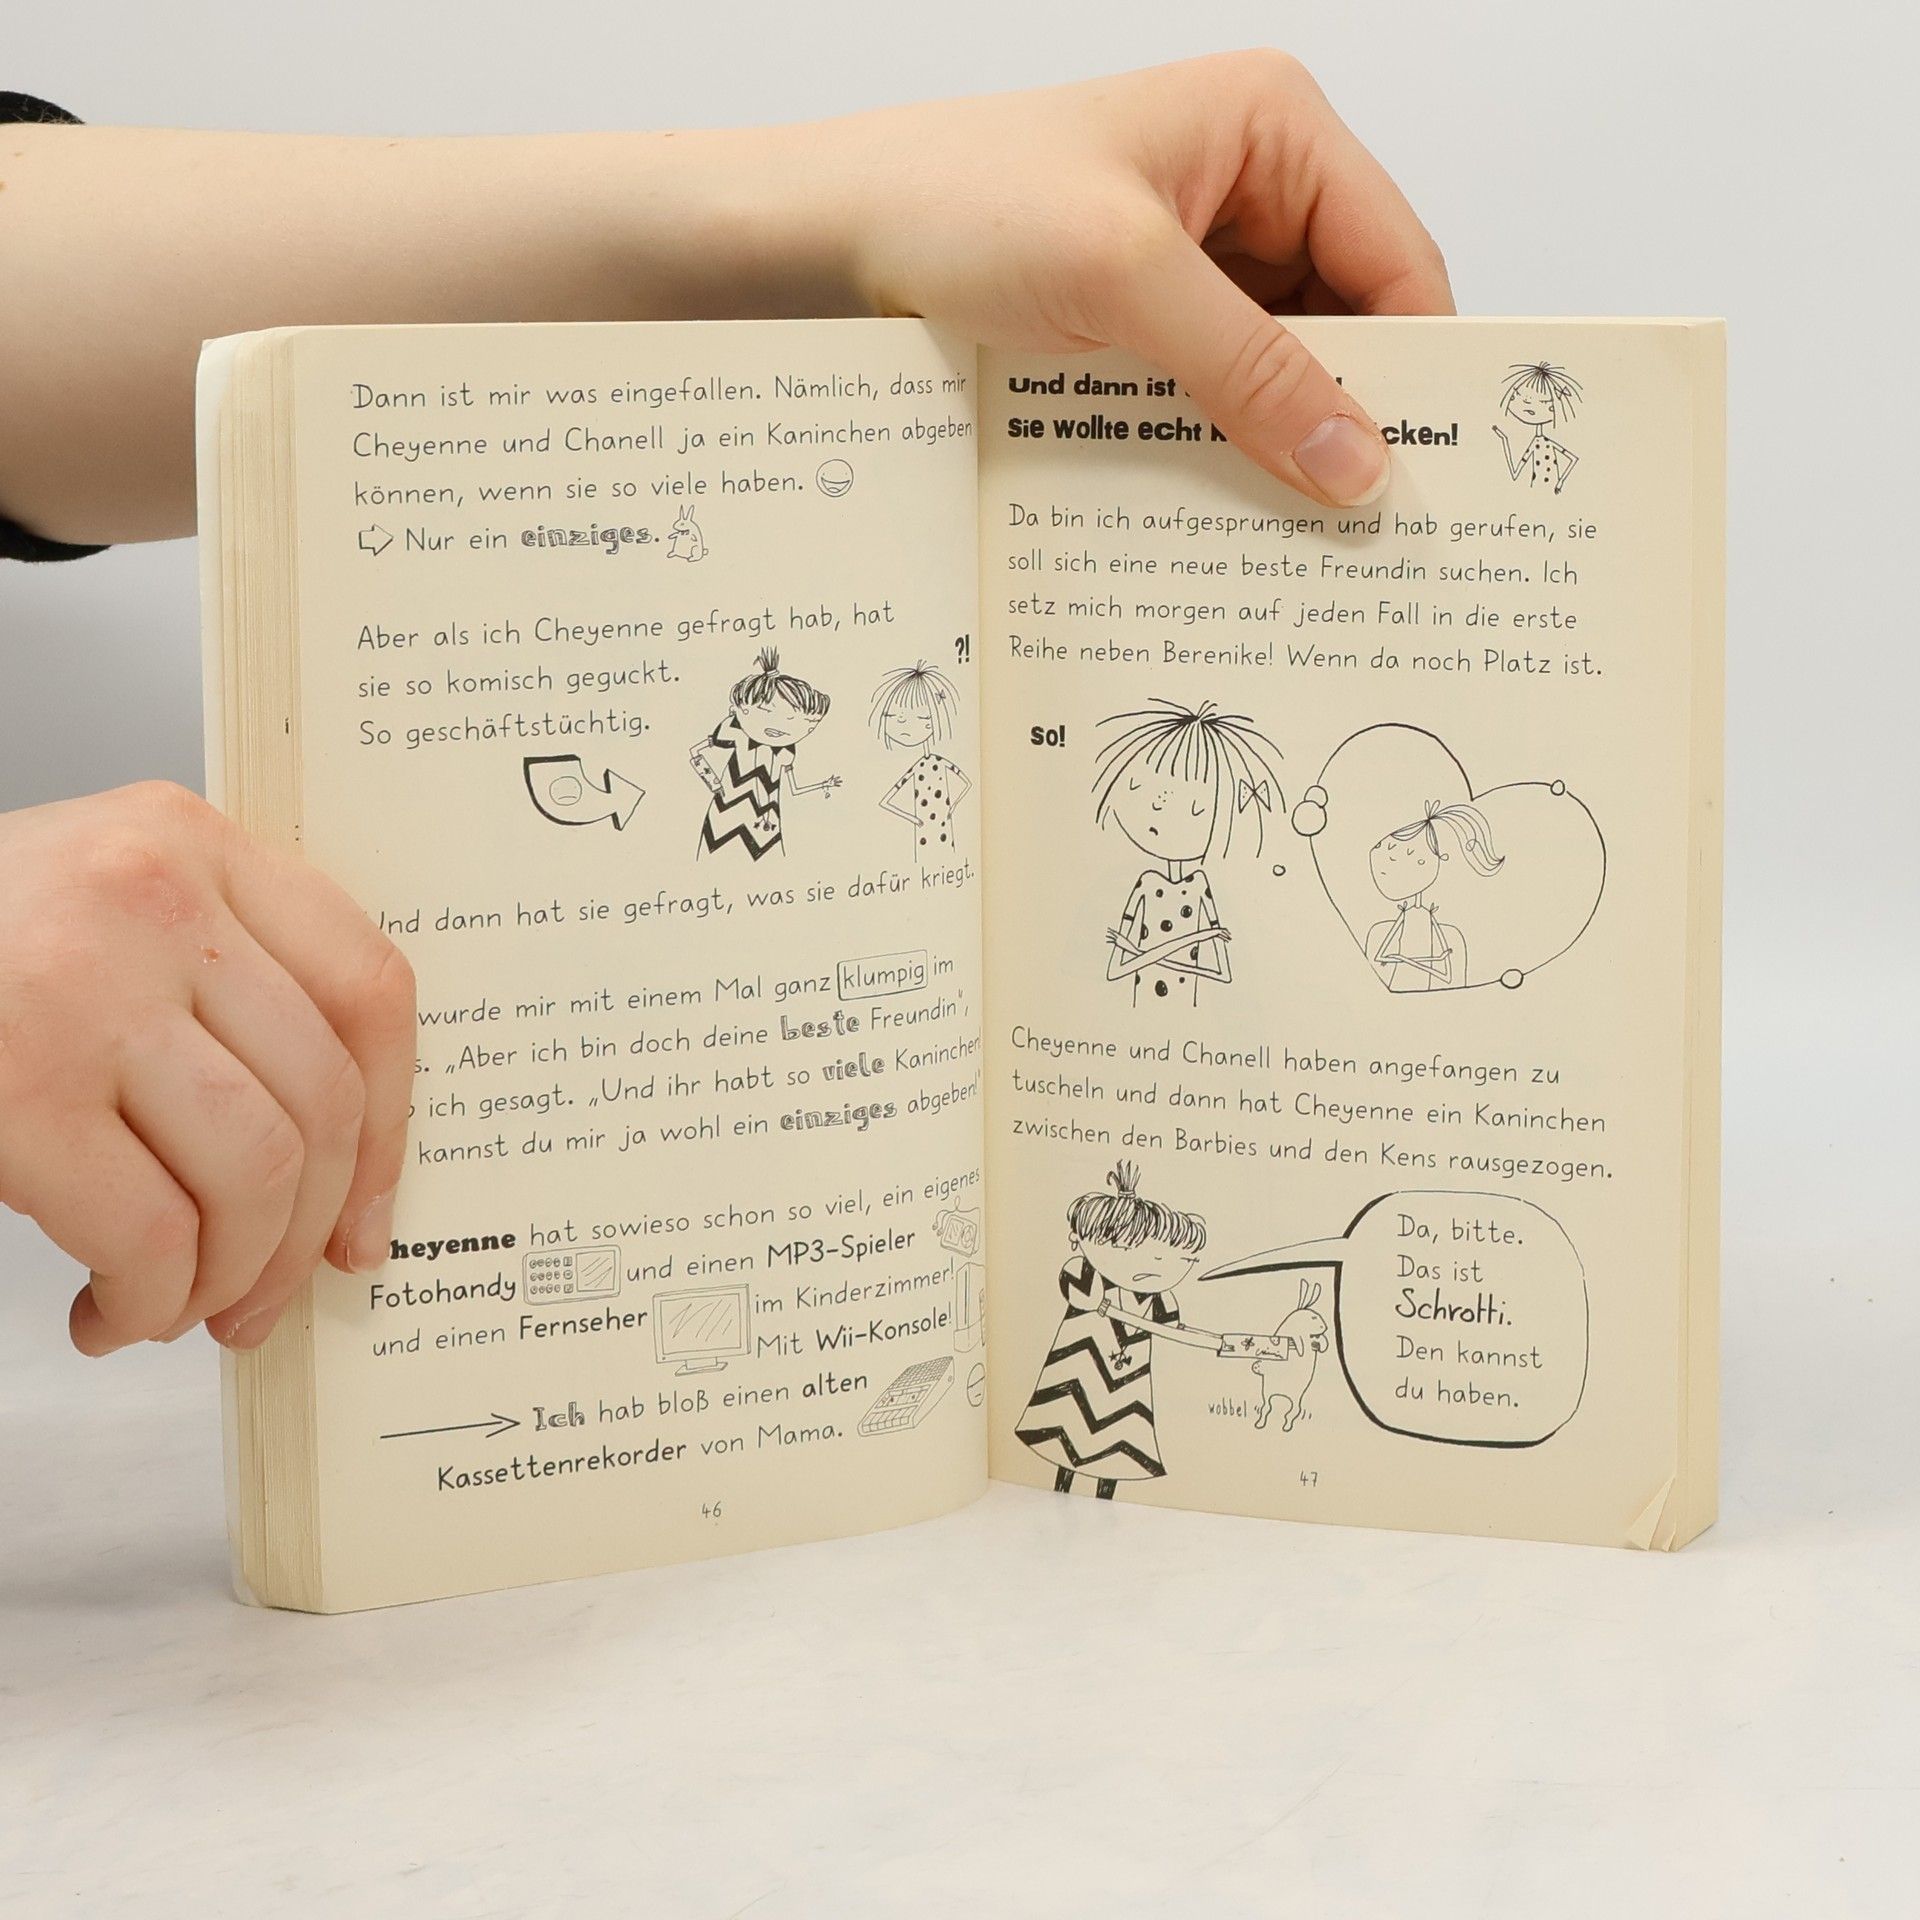 Dann ist mir was eingefallen. Nämlich, dass mir
Cheyenne und Chanell ja ein Kaninchen abgeben
können, wenn sie so viele haben.
Nur ein einziges.
Aber als ich Cheyenne gefragt hab, hat
sie so komisch geguckt.
So geschäftstüchtig.
?!
Und dann hat sie gefragt, was sie dafür kriegt.
wurde mir mit einem Mal ganz klumpig im
„Aber ich bin doch deine beste Freundin“,
ich gesagt. „Und ihr habt so viele Kaninchen!
kannst du mir ja wohl ein einziges abgeben!“
Cheyenne hat sowieso schon so viel, ein eigenes
Fotohandy und einen MP3-Spieler
und einen Fernseher im Kinderzimmer!
Mit Wii-Konsole!
Ich hab bloß einen alten
Kassettenrekorder von Mama.
46
Und dann ist
Sie wollte echt
Da bin ich aufgesprungen und hab gerufen, sie
soll sich eine neue beste Freundin suchen. Ich
setz mich morgen auf jeden Fall in die erste
Reihe neben Berenike! Wenn da noch Platz ist.
So!
Cheyenne und Chanell haben angefangen zu
tuscheln und dann hat Cheyenne ein Kaninchen
zwischen den Barbies und den Kens rausgezogen.
Da, bitte.
Das ist
Schrotti.
Den kannst
du haben.
wobbel
47